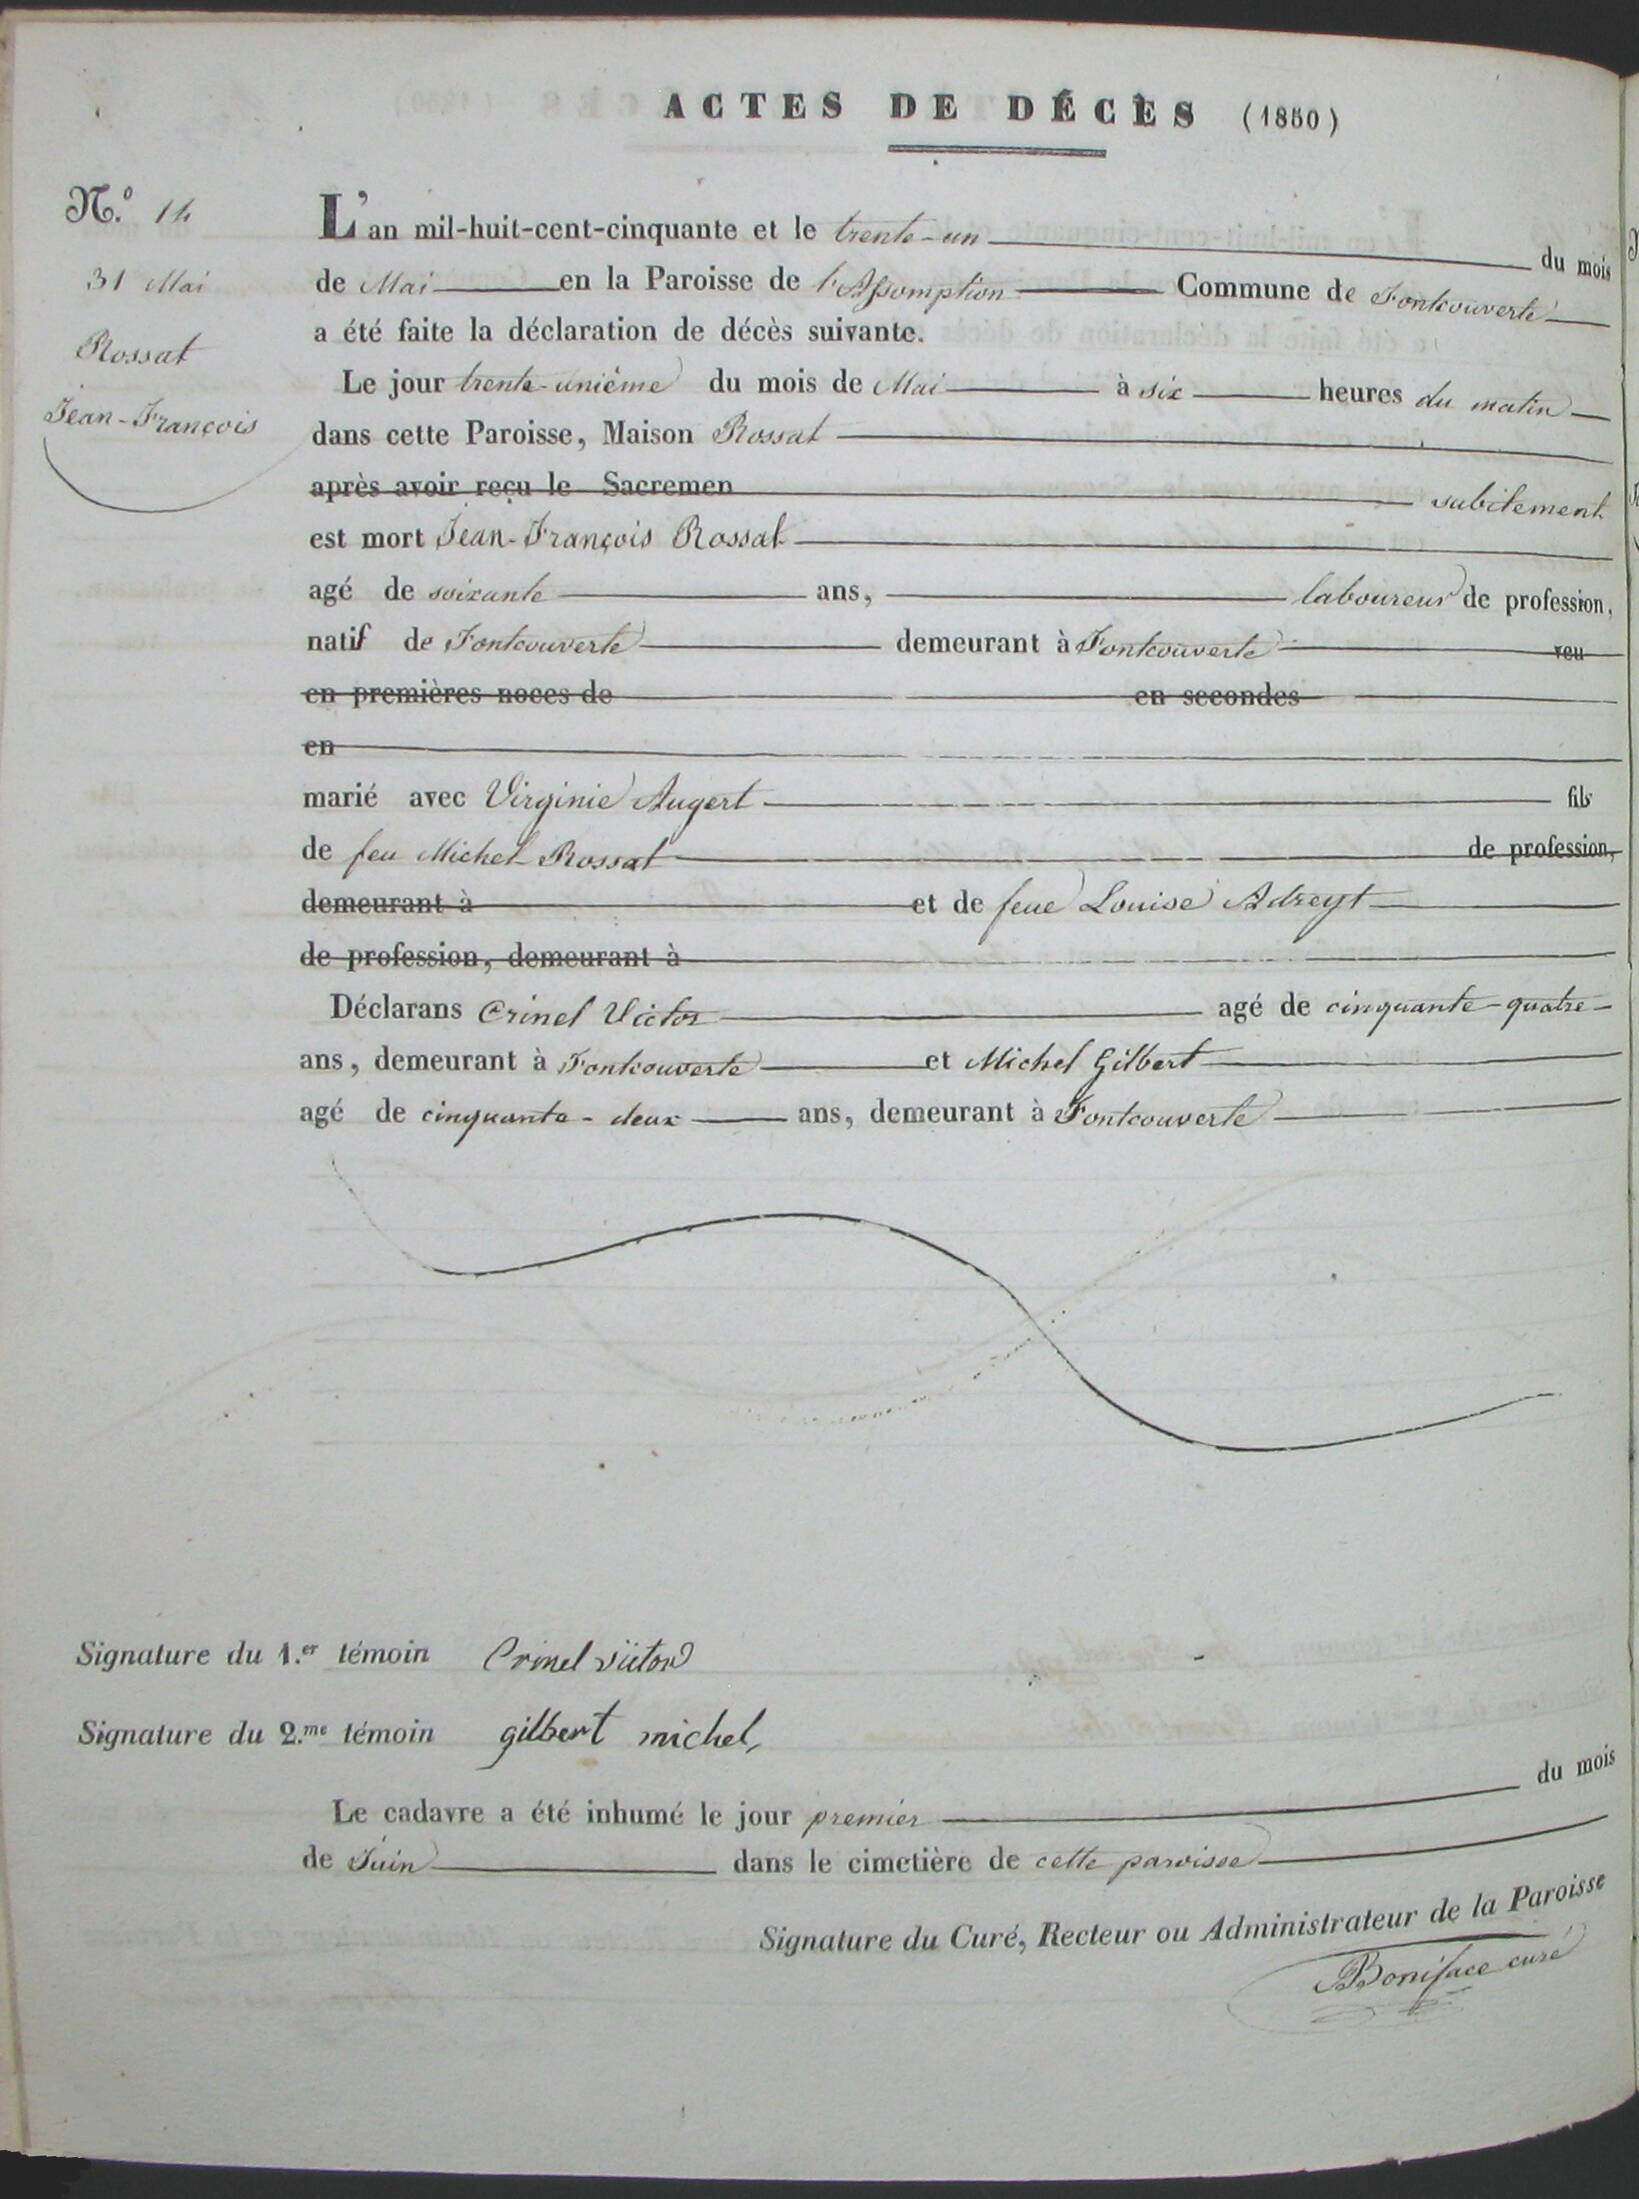 ACTES DE DÉCÈS (1850)
N.º 14
31 Mai
Rossat
Jean-François
L'an mil-huit-cent-cinquante et le trente-un du mois
de Mai en la Paroisse de l'Assomption Commune de Fontcouverte
a été faite la déclaration de décès suivante.
Le jour trente-unième du mois de Mai à six heures du matin
dans cette Paroisse, Maison Rossat
après avoir reçu le Sacremen subitement
est mort Jean-François Rossat
agé de soixante ans, laboureur de profession,
natif de Fontcouverte demeurant à Fontcouverte veu
en premières noces de en secondes
en
marié avec Virginie Augert fils
de feu Michel Rossat de profession,
demeurant à et de feue Louise Adreyt
de profession, demeurant à
Déclarans Crinel Victor agé de cinquante-quatre
ans, demeurant à Fontcouverte et Michel Gilbert
agé de cinquante-deux ans, demeurant à Fontcouverte
Signature du 1.er témoin Crinel victor
Signature du 2.me témoin gilbert michel,
Le cadavre a été inhumé le jour premier du mois
de Juin dans le cimetière de cette paroisse
Signature du Curé, Recteur ou Administrateur de la Paroisse
Boniface curé